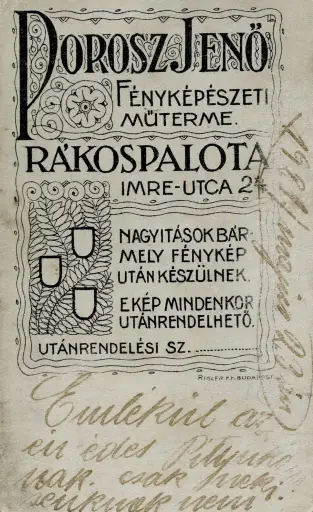 POROSZ JENŐ
FÉNYKÉPÉSZETI
MŰTERME.
RÁKOSPALOTA
IMRE-UTCA 2
NAGYITÁSOK BÁR-
MELY FÉNYKÉP
UTÁN KÉSZÜLNEK.
E KÉP MINDENKOR
UTÁNRENDELHETŐ.
UTÁNRENDELÉSI SZ.
RIGLER F.F. BUDAPEST
Emlékül az
én édes
nak. csak neki
senkinek nem!